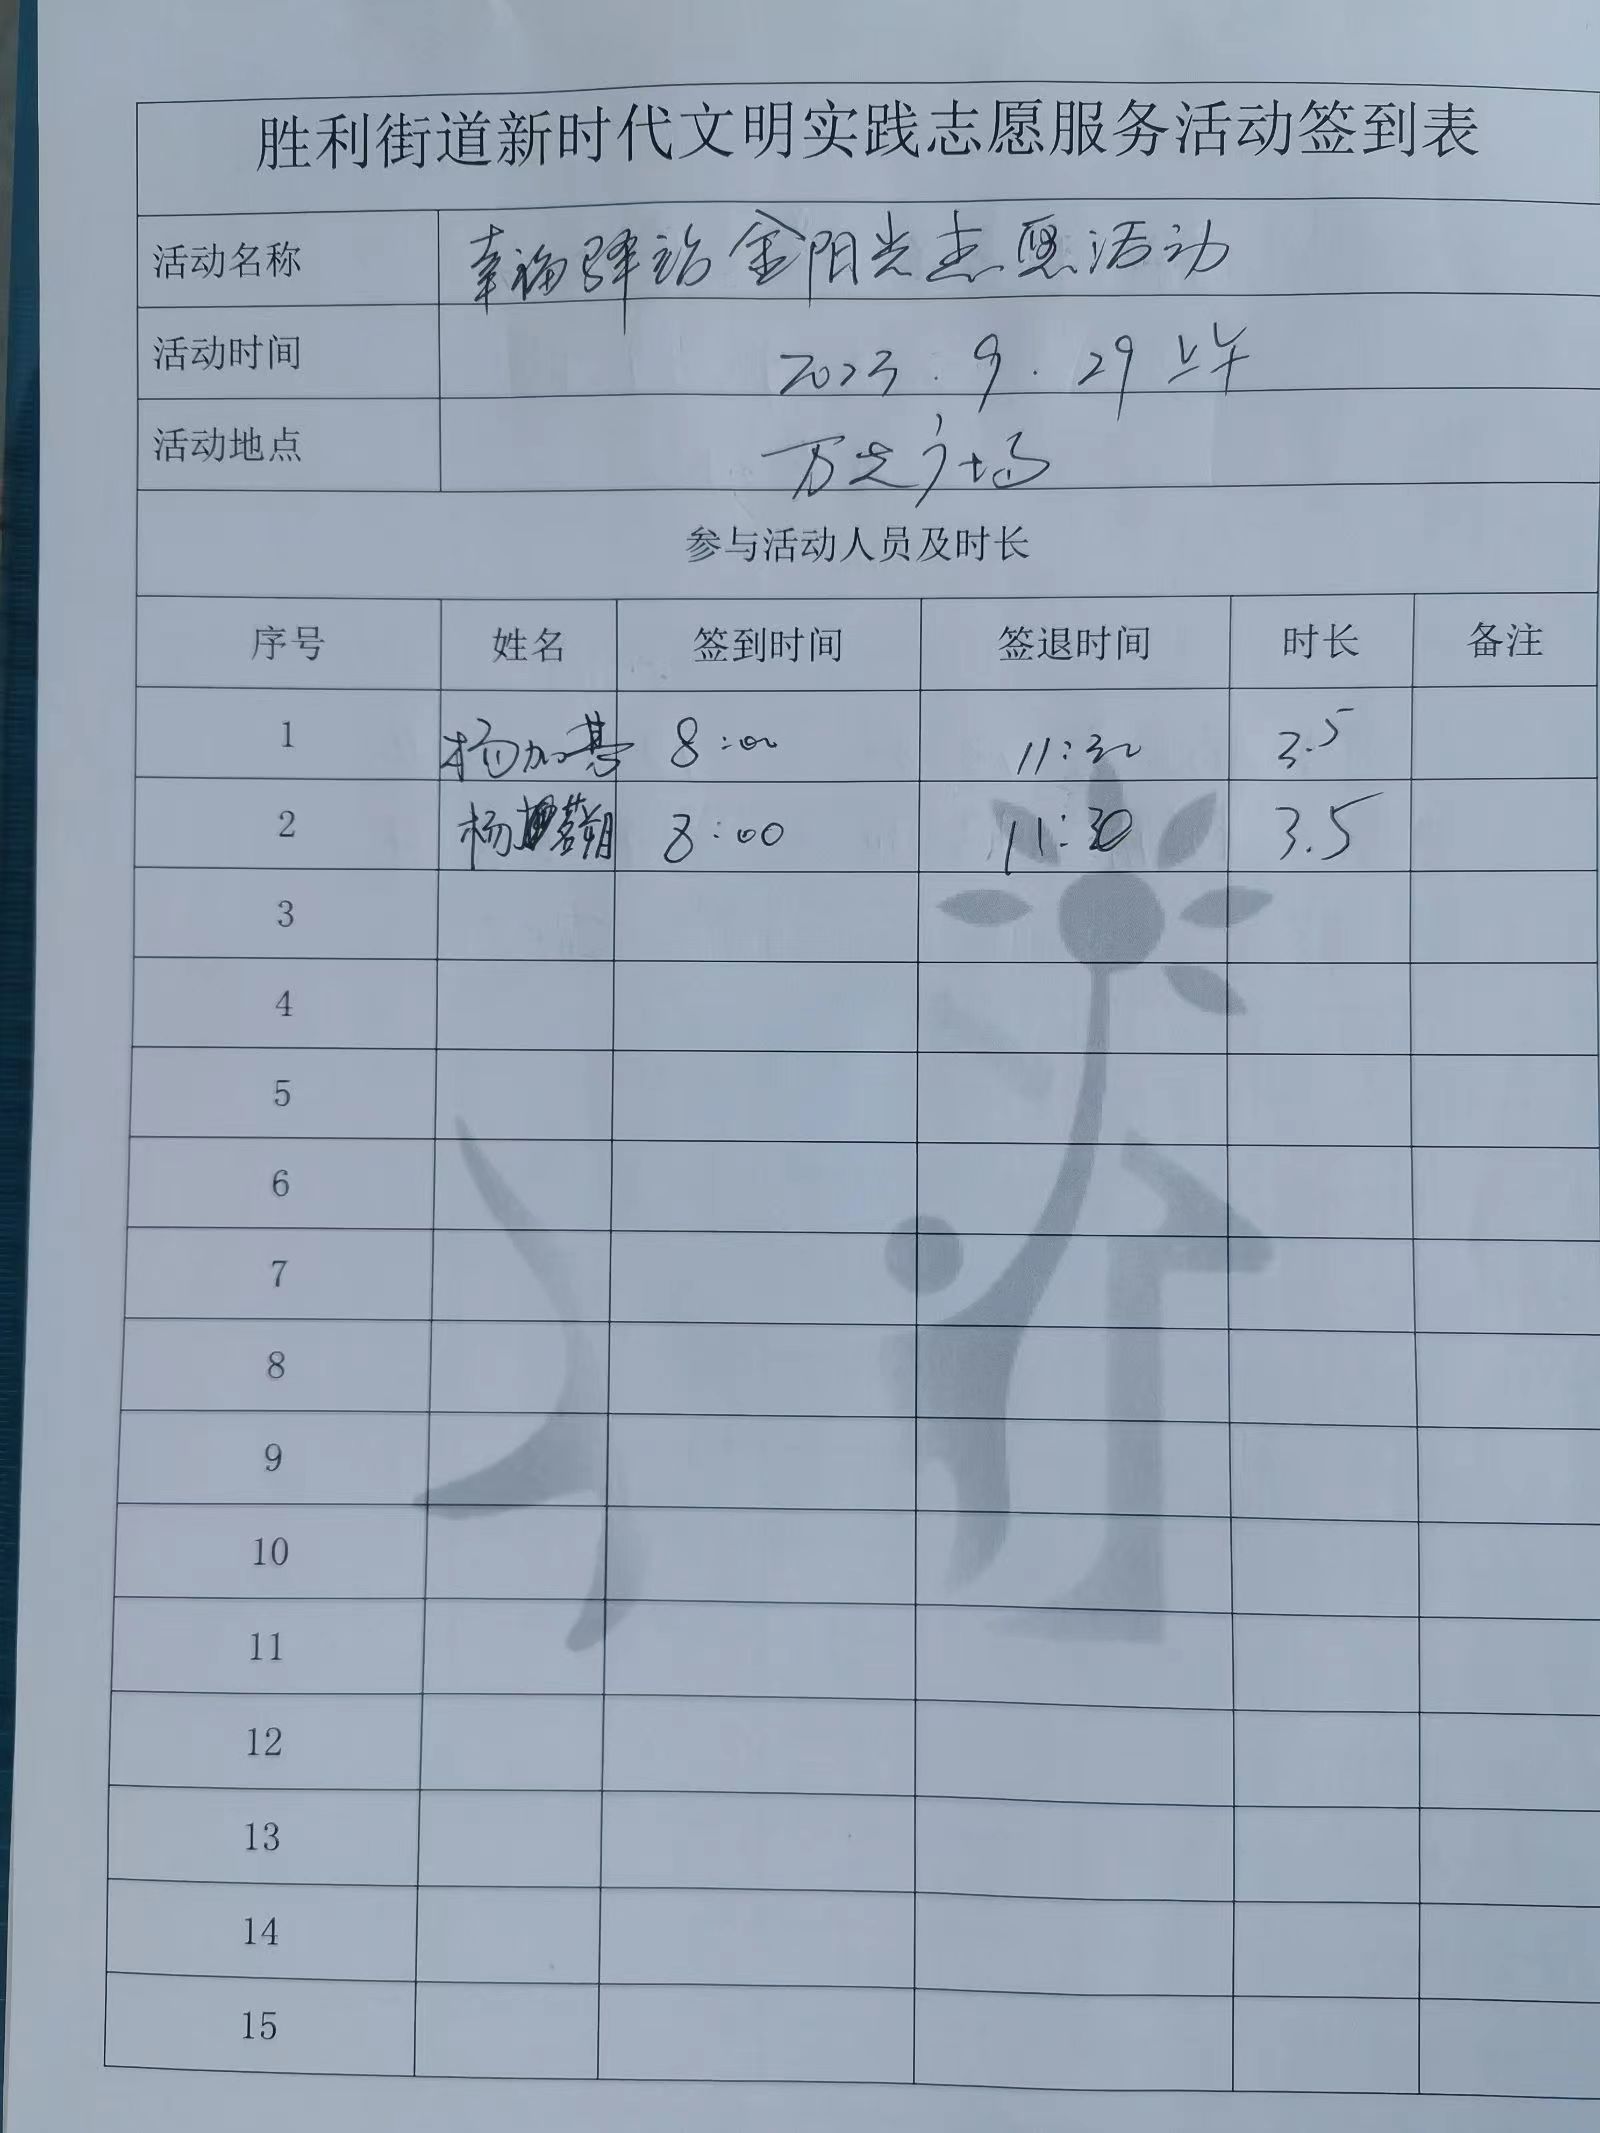 胜利街道新时代文明实践志愿服务活动签到表
活动名称 幸福驿站金阳光志愿活动
活动时间 2023.9.29 上午
活动地点 万达广场
参与活动人员及时长
序号 姓名 签到时间 签退时间 时长 备注
1 杨加基 8:00 11:30 3.5
2 杨茗朔 8:00 11:30 3.5
3
4
5
6
7
8
9
10
11
12
13
14
15